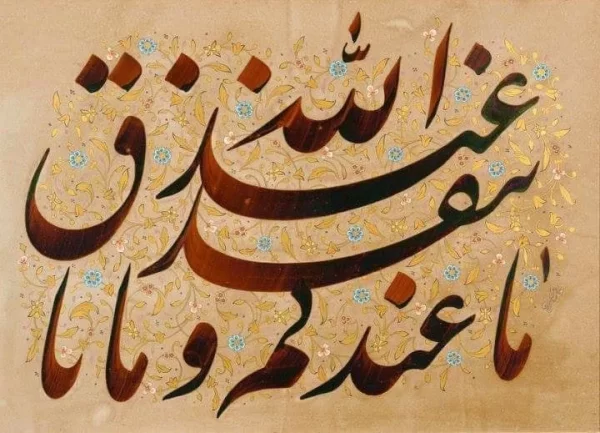 ما عندکم ینفد و ما عند الله باق